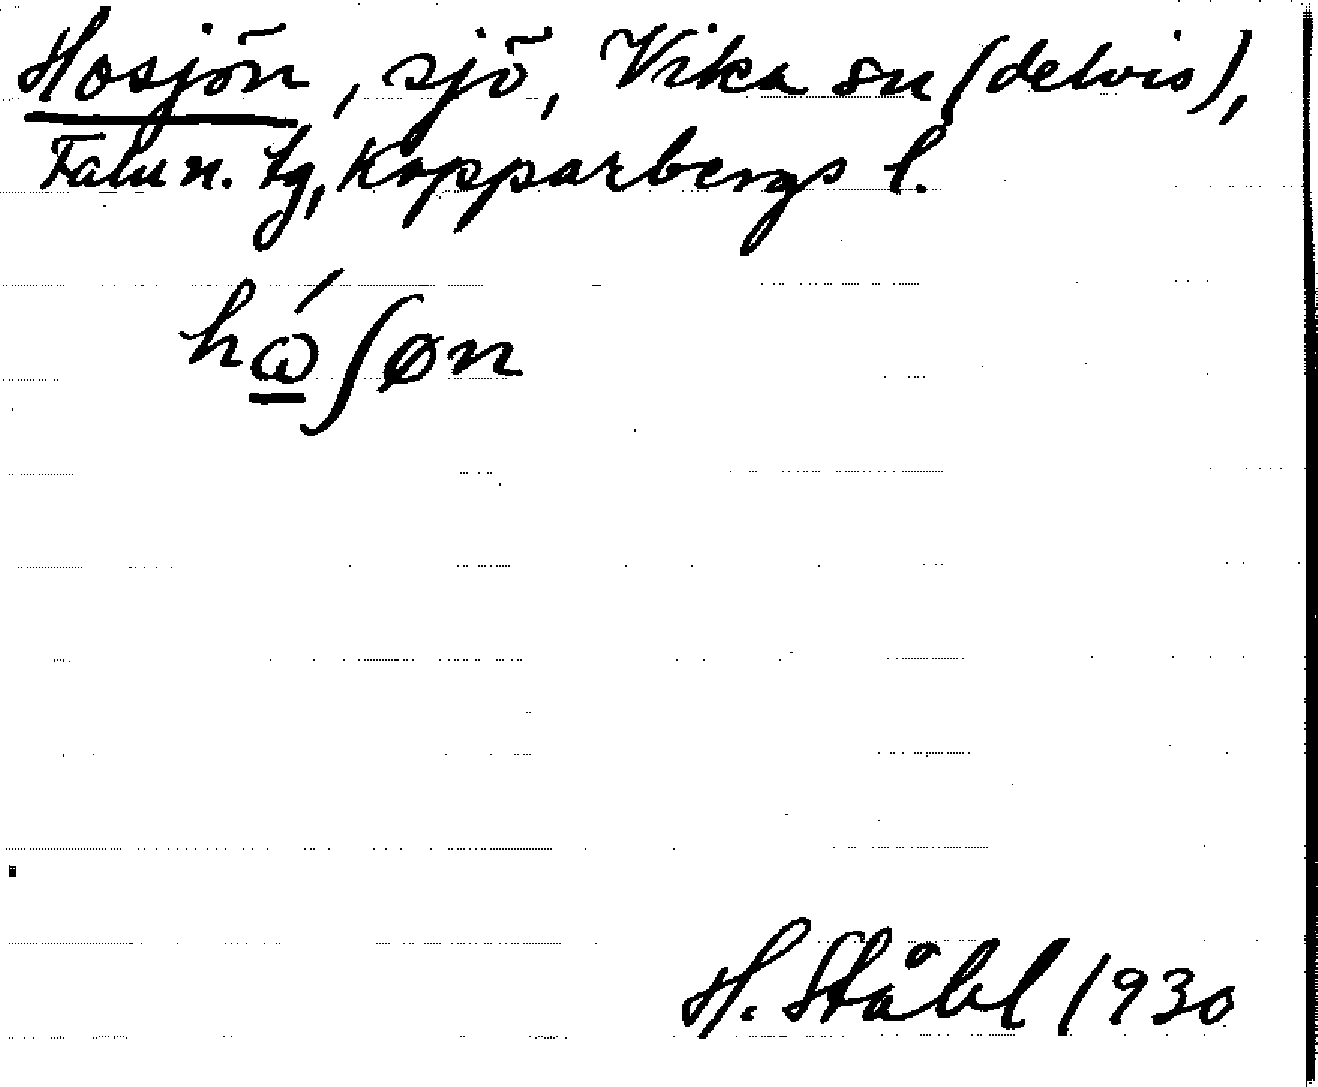 Hosjön, sjö, Vika sn (delvis),
Falun. tg, Kopparbergs l.
hó̲ʃøn
H. Ståhl 1930